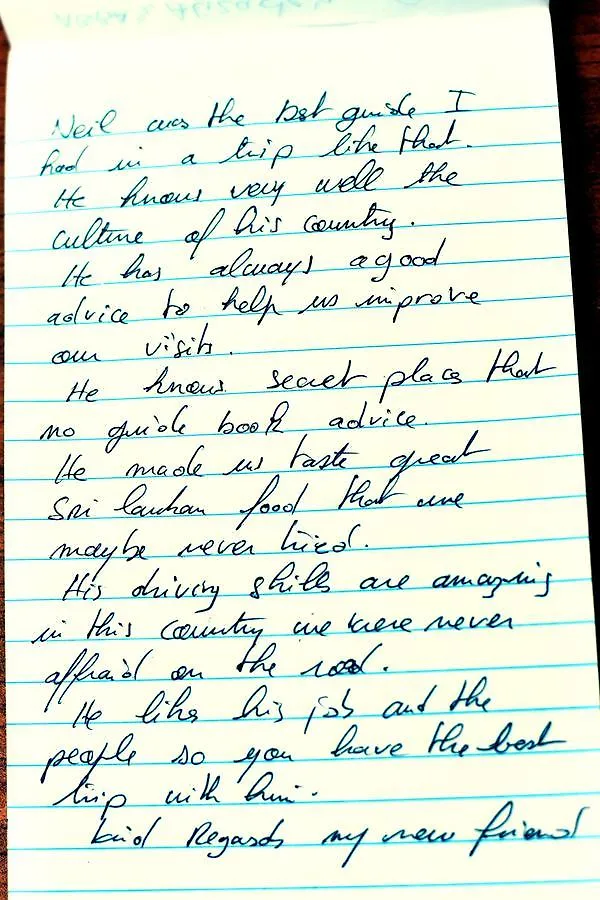 Neil was the best guide I
had in a trip like that.
He knows very well the
culture of his country.
He has always a good
advice to help us improve
our visits.
He knows secret places that
no guide book advice.
He made us taste great
Sri lankan food that we
maybe never tried.
His driving skills are amazing
in this country we were never
affraid on the road.
He likes his job and the
people so you have the best
trip with him.
Kind Regards my new friend